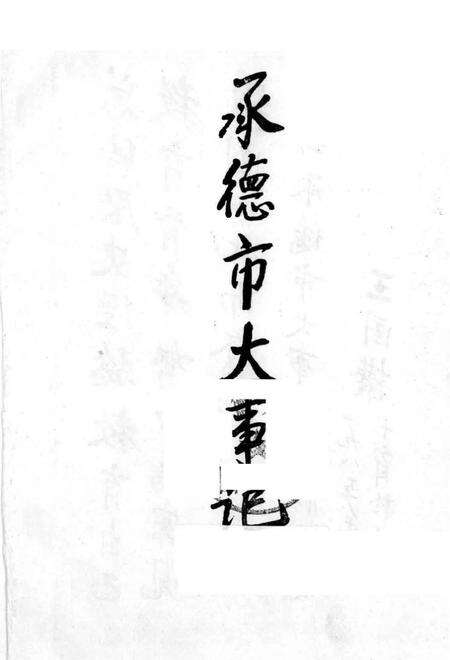 承德市大事记